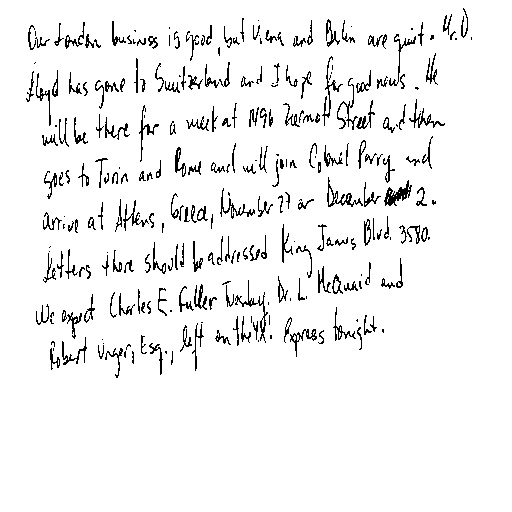 Our London business is good, but Viena and Berlin are quiet. Mr. D.
Lloyd has gone to Switzerland and I hope for good news. He
will be there for a week at 1496 Zermot Street and then
goes to Turin and Rome and will join Colonel Parry and
arrive at Athens, Greece, November 27 or December 2.
Letters there should be addressed King James Blvd. 3580.
We expect Charles E. Fuller Tuesday. Dr. L. McQuaid and
Robert Unger, Esq., left on the 'Y.X.' Express tonight.